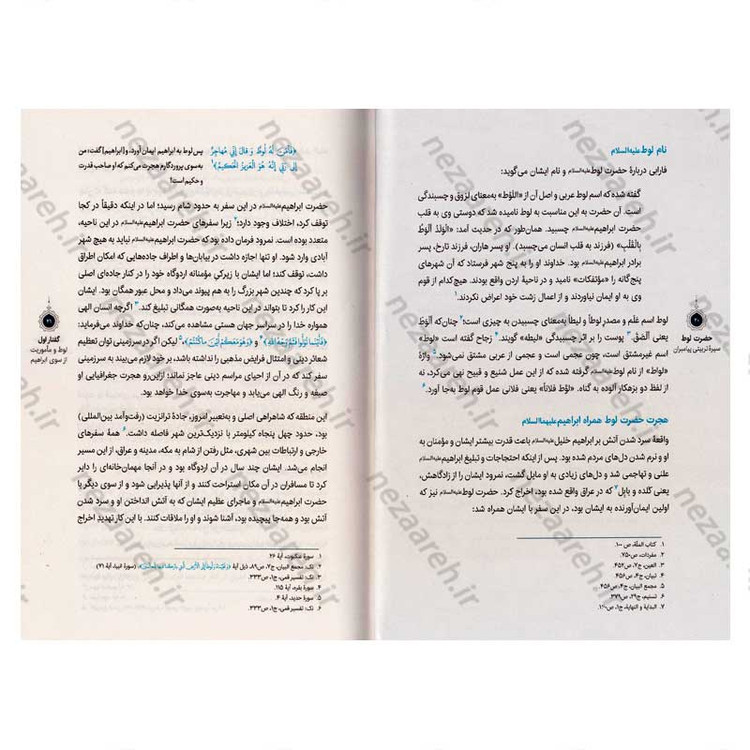 نام لوط علیه‌السلام
فارابی دربارهٔ حضرت لوط علیه‌السلام و نام ایشان می‌گوید:
گفته شده که اسم لوط عربی و اصل آن از «اللَّوْط» به‌معنای لزوق و چسبندگی
است. آن حضرت به این مناسبت به لوط نامیده شد که دوستی وی به قلب
حضرت ابراهیم علیه‌السلام چسبید. همان‌طور که در حدیث آمد: «الوَلَدُ أَلوَطُ
بِالْقَلْبِ» (فرزند به قلب انسان می‌چسبد). او پسر هاران، فرزند تارخ، پسر
برادر ابراهیم علیه‌السلام بود. خداوند، او را به پنج شهر فرستاد که آن شهرهای
پنج‌گانه را «مؤتفکات» نامید و در ناحیهٔ اردن واقع شدند. هیچ‌کدام از قوم
وی به او ایمان نیاوردند و از اعمال زشت خود اعراض نکردند.۱
لوط اسم عَلَم و مصدر لَوطاً و لیطاً به‌معنای چسبیدن به چیزی است؛۲ چنان‌که أَلوَط
یعنی أَلصَق.۳ پوست را بر اثر چسبندگی «لیطه» گویند.۴ زجاج گفته است: «لوط»
اسم غیرمشتق است، چون عجمی است و عجمی از عربی مشتق نمی‌شود.۵ واژهٔ
«لواط» از نام لوط علیه‌السلام گرفته شده که از این عمل شنیع و قبیح نهی می‌کرد، نه
از لفظ دو بزهکار آلوده به گناه. «لَوَّط فلاناً» یعنی فلانی عمل قوم لوط را به‌جا آورد.۶
هجرت حضرت لوط همراه ابراهیم علیهماالسلام
واقعهٔ سرد شدن آتش بر ابراهیم خلیل علیه‌السلام باعث قدرت بیشتر ایشان و مؤمنان به
او و نرم شدن دل‌های مردم شده بود. پس از اینکه احتجاجات و تبلیغ ابراهیم علیه‌السلام
علنی و تهاجمی شد و دل‌های زیادی به او مایل گشت، نمرود ایشان را از زادگاهش،
یعنی کلده و بابِل۷ که در عراق واقع شده بود، اخراج کرد. حضرت لوط علیه‌السلام نیز که
اولین ایمان‌آورنده به ایشان بود، در این سفر با ایشان همراه شد:
۱. کتاب الملة، ص ۱۰۰.
۲. مفردات، ص ۷۵۰.
۳. العین، ج۷، ص۴۵۲.
۴. تبیان، ج۴، ص۴۵۶.
۵. مجمع البیان، ج۴، ص۶۸۴.
۶. تسنیم، ج۲۹، ص۳۷۹.
۷. البدایة و النهایة، ج۱، ص۱۴۰.
۲۰
حضرت لوط
سیرهٔ تربیتی پیامبران
﴿فَآمَنَ لَهُ لُوطٌ وَ قَالَ إِنِّی مُهَاجِرٌ
إِلَى رَبِّی إِنَّهُ هُوَ الْعَزِیزُ الْحَکِیمُ﴾؛۱
پس لوط به ابراهیم ایمان آورد، و [ابراهیم] گفت: من
به‌سوی پروردگارم هجرت می‌کنم که او صاحب قدرت
و حکیم است؟
حضرت ابراهیم علیه‌السلام در این سفر به حدود شام رسید؛ اما اینکه دقیقاً در کجا
توقف کرد، اختلاف وجود دارد؛۲ زیرا سفرهای حضرت ابراهیم علیه‌السلام در این ناحیه،
متعدد بوده است. نمرود فرمان داده بود که حضرت ابراهیم علیه‌السلام نباید به هیچ شهر
آبادی وارد شود. او تنها اجازه داشت در بیابان‌ها و اطراف جاده‌هایی که امکان اطراق
داشت، توقف کند؛ اما ایشان با زیرکی مؤمنانه اردوگاه خود را در کنار جاده‌ای اصلی
بر پا کرد که چندین شهر بزرگ را به هم پیوند می‌داد و محل عبور همگان بود. ایشان
این کار را کرد تا بتواند در این ناحیه به‌صورت همگانی تبلیغ کند.۳ اگرچه انسان الهی
همواره خدا را در سراسر جهان هستی مشاهده می‌کند، چنان‌که خداوند می‌فرماید:
﴿فَأَیْنَمَا تُوَلُّوا فَثَمَّ وَجْهُ اللَّهِ﴾۴ و ﴿وَهُوَ مَعَکُمْ أَیْنَ مَا کُنْتُمْ﴾۵؛ لیکن اگر در سرزمینی توان تعظیم
شعائر دینی و امتثال فرایض مذهبی را نداشته باشد، بر خود لازم می‌بیند به سرزمینی
برود که در آن از احیای مراسم دینی عاجز نماند؛ ازاین‌رو هجرت جغرافیایی او
صبغه و رنگ الهی می‌یابد و مهاجرت به‌سوی خدا خواهد بود.
این منطقه که شاهراهی اصلی و به‌تعبیر امروز، جادهٔ ترانزیت (رفت‌وآمد بین‌المللی)
بود، حدود چهل پنجاه کیلومتر با نزدیک‌ترین شهر فاصله داشت.۶ همهٔ سفرهای
خارجی و ارتباطات بین شهری، مثل رفتن از شام به مکه، مدینه و عراق، از این مسیر
انجام می‌شد. ایشان چند سال در آن اردوگاه بود و در آنجا مهمان‌خانه‌ای را دایر
کرد تا مسافران در آن مکان استراحت کنند و از آنها پذیرایی شود و از سوی دیگر با
حضرت ابراهیم علیه‌السلام و ماجرای عظیم ایشان که به آتش انداختن او و سرد شدن
آتش بود و همه‌جا پیچیده بود، آشنا شوند و او را ملاقات کنند. با این کار تهدیدِ اخراج
۱. سورهٔ عنکبوت، آیهٔ ۲۶
۲. نک: مجمع البیان، ج۷، ص۸۹، ذیل آیهٔ (سورهٔ انبیا، آیهٔ ۷۱)
۳. نک: تفسیر قمی، ج۱، ص۳۳۳.
۴. سورهٔ بقره، آیهٔ ۱۱۵.
۵. سورهٔ حدید، آیهٔ ۴.
۶. نک: تفسیر قمی، ج۱، ص۳۳۳.
۲۱
گفتار اول
لوط و مأموریت
از سوی ابراهیم
nezaareh.ir